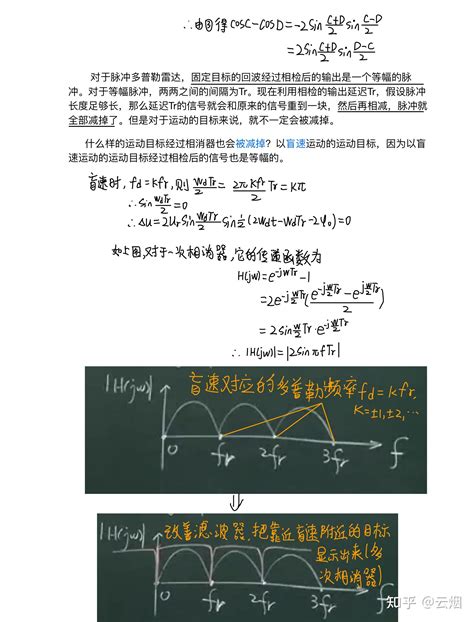 ∴由图得 cosC-cosD=-2sin (C+D)/2 sin (C-D)/2
=2sin (C+D)/2 sin (D-C)/2
对于脉冲多普勒雷达，固定目标的回波经过相检后的输出是一个等幅的脉
冲。对于等幅脉冲，两两之间的间隔为Tr。现在利用相检的输出延迟Tr，假设脉冲
长度足够长，那么延迟Tr的信号就会和原来的信号重到一块，然后再相减，脉冲就
全部减掉了。但是对于运动的目标来说，就不一定会被减掉。
什么样的运动目标经过相消器也会被减掉？以盲速运动的运动目标，因为以盲
速运动的运动目标经过相检后的信号也是等幅的。
盲速时，fd=kfr，则 (WdTr)/2 = (2πKfr)/2 Tr=Kπ
∴sin (WdTr)/2 =0
∴Δu=2Ur sin (WdTr)/2 sin 1/2 (2Wdt-WdTr-2φ₀)=0
如上图，对于一次相消器，它的传递函数为
H(jw)=e^(-jwTr)-1
=2e^(-j(w/2)Tr) ((e^(-j(w/2)Tr)-e^(j(w/2)Tr))/2)
=2sin (w/2)Tr·e^(-j(w/2)Tr)
∴|H(jw)|=|2sinπfTr|
|H(jw)|
盲速对应的多普勒频率fd=kfr,
K=±1,±2,…
0 fr 2fr 3fr f
⇓
|H(jw)|
改善滤波器，把靠近盲速附近的目标
显示出来(多
次相消器)
0 fr 2fr 3fr f
知乎 @云烟